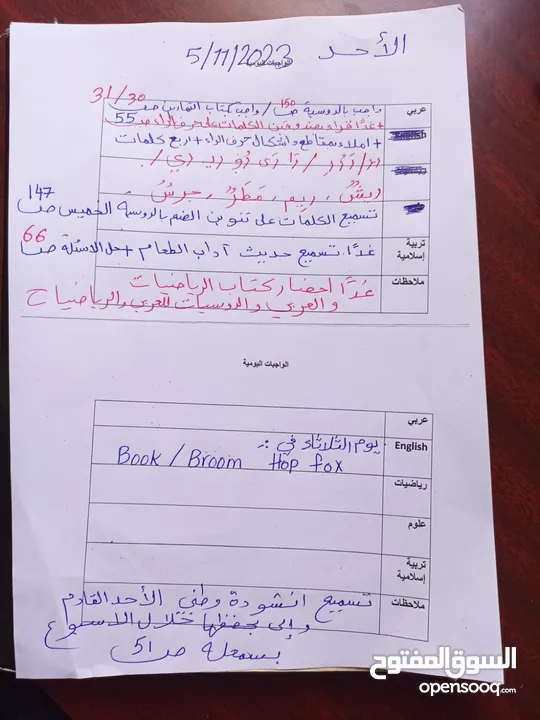 الأحد 5/11/2023
الواجبات اليومية
31/30
عربي
واجب بالدوسية ص 150 / واجب كتاب التمارين ص
+ غدًا قراءة صندوقين الكلمات على حرف الراء ص 55
English
+ املاء بمقاطع واشكال حرف الراء + اربع كلمات
ريشٌ، ريم، مَطَرٌ، جرسٌ
تسميع الكلمات على تنوين الضم بالدوسية الخميس ص 147
تربية إسلامية
غدًا تسميع حديث آداب الطعام + حل الاسئلة ص 66
ملاحظات
غدًا احضار كتاب الرياضيات
و العربي والدوسيات للعربي والرياضيات
الواجبات اليومية
عربي
English
يوم الثلاثاء في :
Book / Broom Hop fox
رياضيات
علوم
تربية إسلامية
ملاحظات
تسميع انشودة وطني الأحد القادم
وإلي بحفظها خلال الاسبوع
بسمعله ص 51
السوق المفتوح
opensooq.com